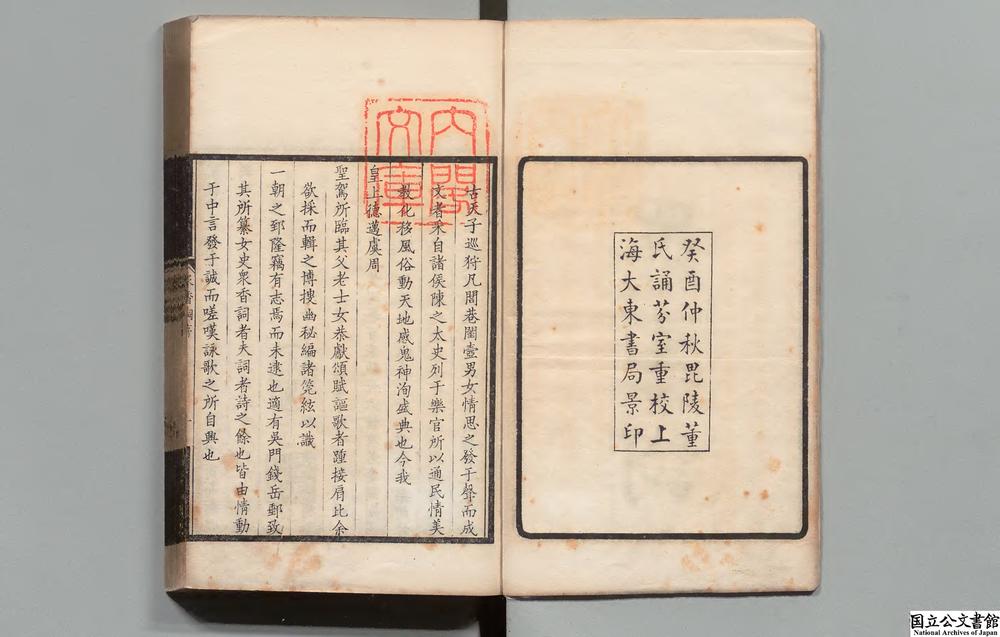 癸酉仲秋毘陵董
氏誦芬室重校上
海大東書局景印
內閣
文庫
古天子巡狩凡閭巷閨壼男女情思之發于聲而成
文者采自諸侯陳之太史列于樂官所以通民情美
教化移風俗動天地感鬼神洵盛典也今我
皇上德邁虞周
聖駕所臨其父老士女恭獻頌賦謳歌者踵接肩比余
欲採而輯之博搜幽秘編諸筦絃以識
一朝之郅隆竊有志焉而未逮也適有吳門錢岳郵致
其所纂女史眾香詞者夫詞者詩之餘也皆由情動
于中言發于誠而嗟嘆詠歌之所自興也
国立公文書館
National Archives of Japan